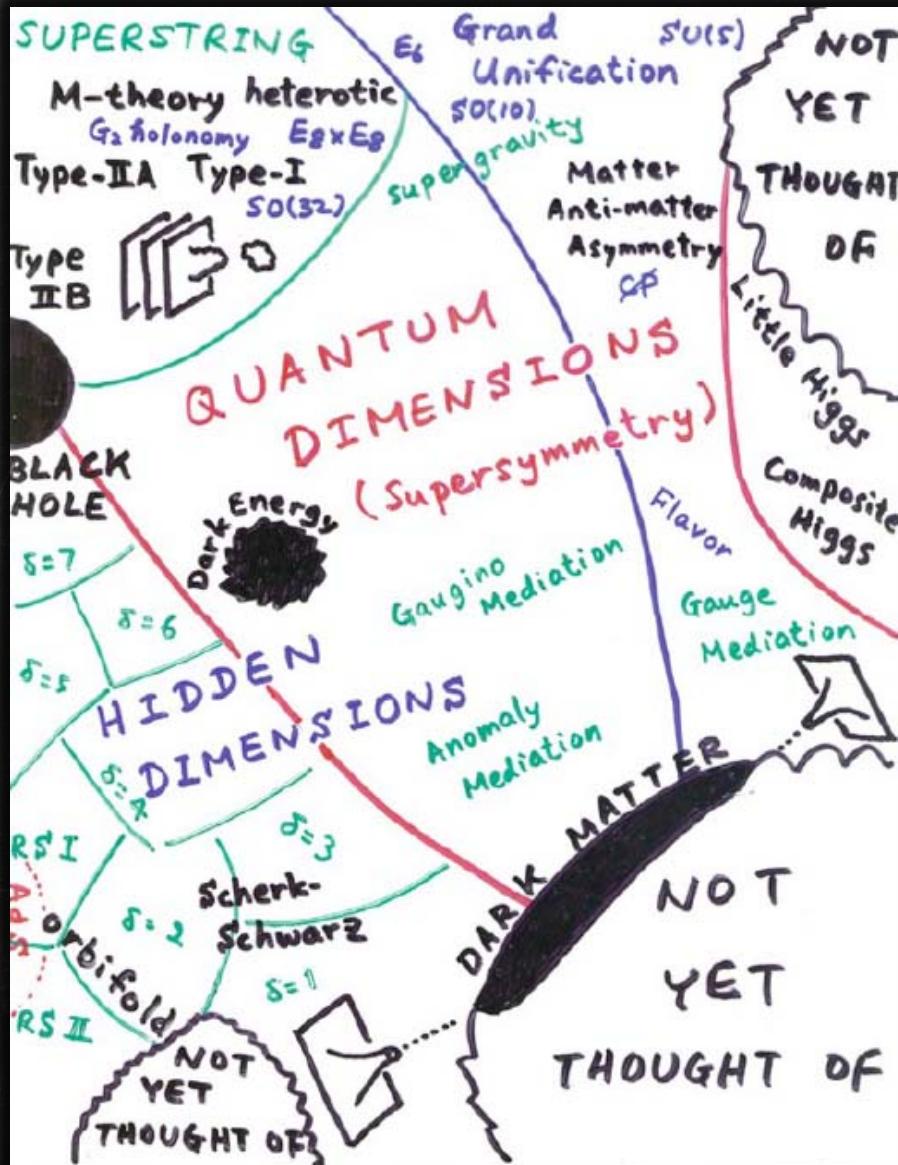 SUPERSTRING
M-theory heterotic
G₂ holonomy E₈×E₈
Type-IIA Type-I
SO(32)
Type
IIB
E₆
Grand
Unification
SU(5)
SO(10)
supergravity
Matter
Anti-matter
Asymmetry
CP
NOT
YET
THOUGHT
OF
Little Higgs
Composite
Higgs
QUANTUM
DIMENSIONS
(Supersymmetry)
BLACK
HOLE
Dark Energy
Flavor
Gaugino
Mediation
Gauge
Mediation
Anomaly
Mediation
δ=7
δ=6
δ=5
HIDDEN
DIMENSIONS
δ=4
δ=3
RS I
AdS
Orbifold
RS II
δ=2
Scherk-
Schwarz
δ=1
DARK MATTER
NOT
YET
THOUGHT OF
NOT
YET
THOUGHT OF